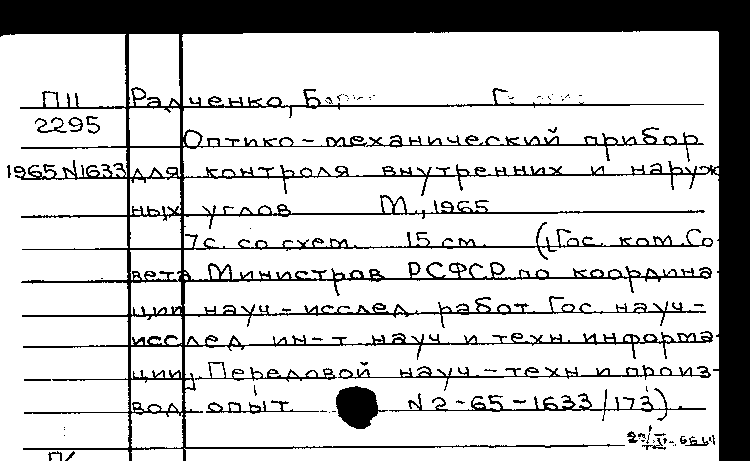 П11 Радченко,
2295
Оптико-механический прибор
1965 N1633 для контроля внутренних и наруж
ных углов М., 1965
7с. со схем. 15 см. ([Гос. ком. Со
вета Министров РСФСР по координа
ции науч-исслед. работ. Гос. науч-
исслед ин-т науч и техн. информа
ции] Передовой науч.-техн и произ-
вод. опыт. N 2-65-1633/173).